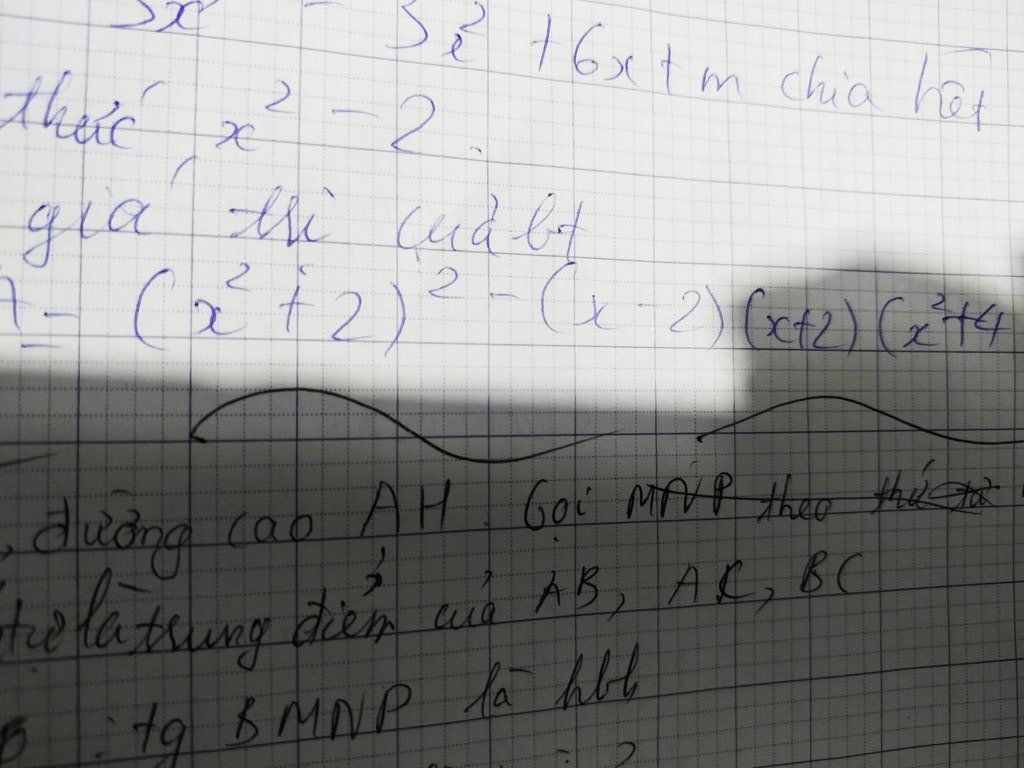 3x - 3x² + 6x + m chia hết
thức x² - 2.
giá trị của bt
A = (x² + 2)² - (x - 2)(x+2)(x²+4
, đường cao AH. Gọi MNP theo thứ tự
là trung điểm của AB, AC, BC
: tg BMNP là hbh